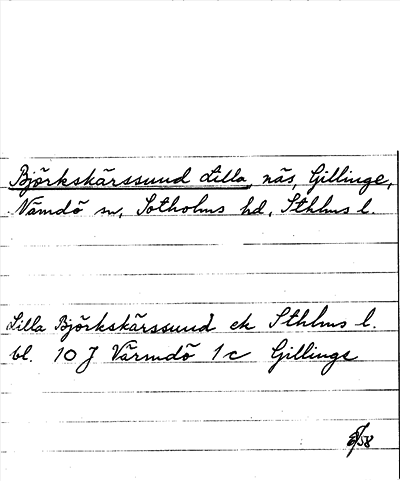 Björkskärssund Lilla, näs, Gillinge,
Nämdö sn, Sotholms hd, Sthlms l.
Lilla Björkskärssund ek Sthlms l.
bl. 10 J Värmdö 1c Gillinge